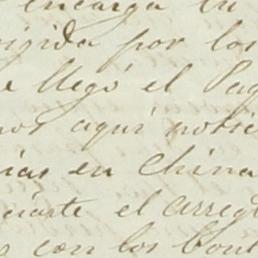 encarga tu
rigida por los
e llegó el Paq
nos aquí notic
ias en China
ciarte el arreg
con los bout